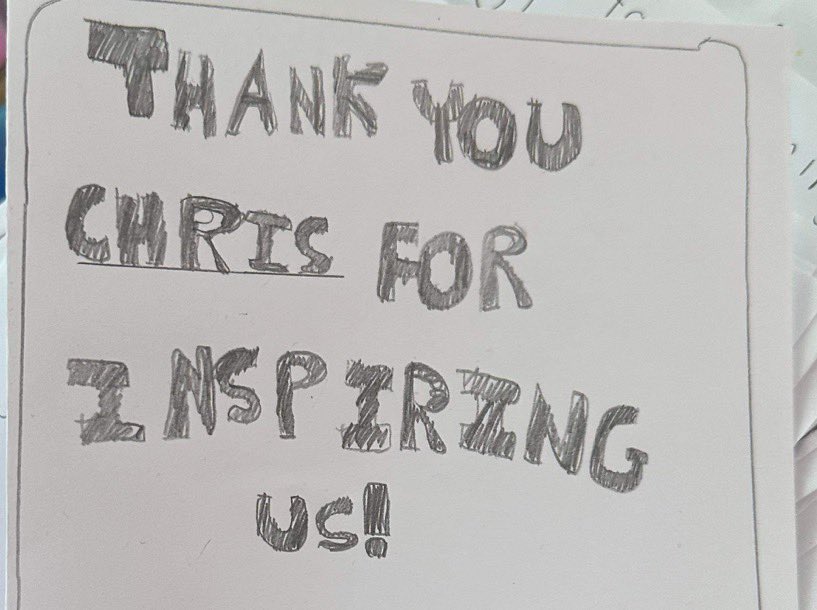 THANK YOU
CHRIS FOR
INSPIRING
US!